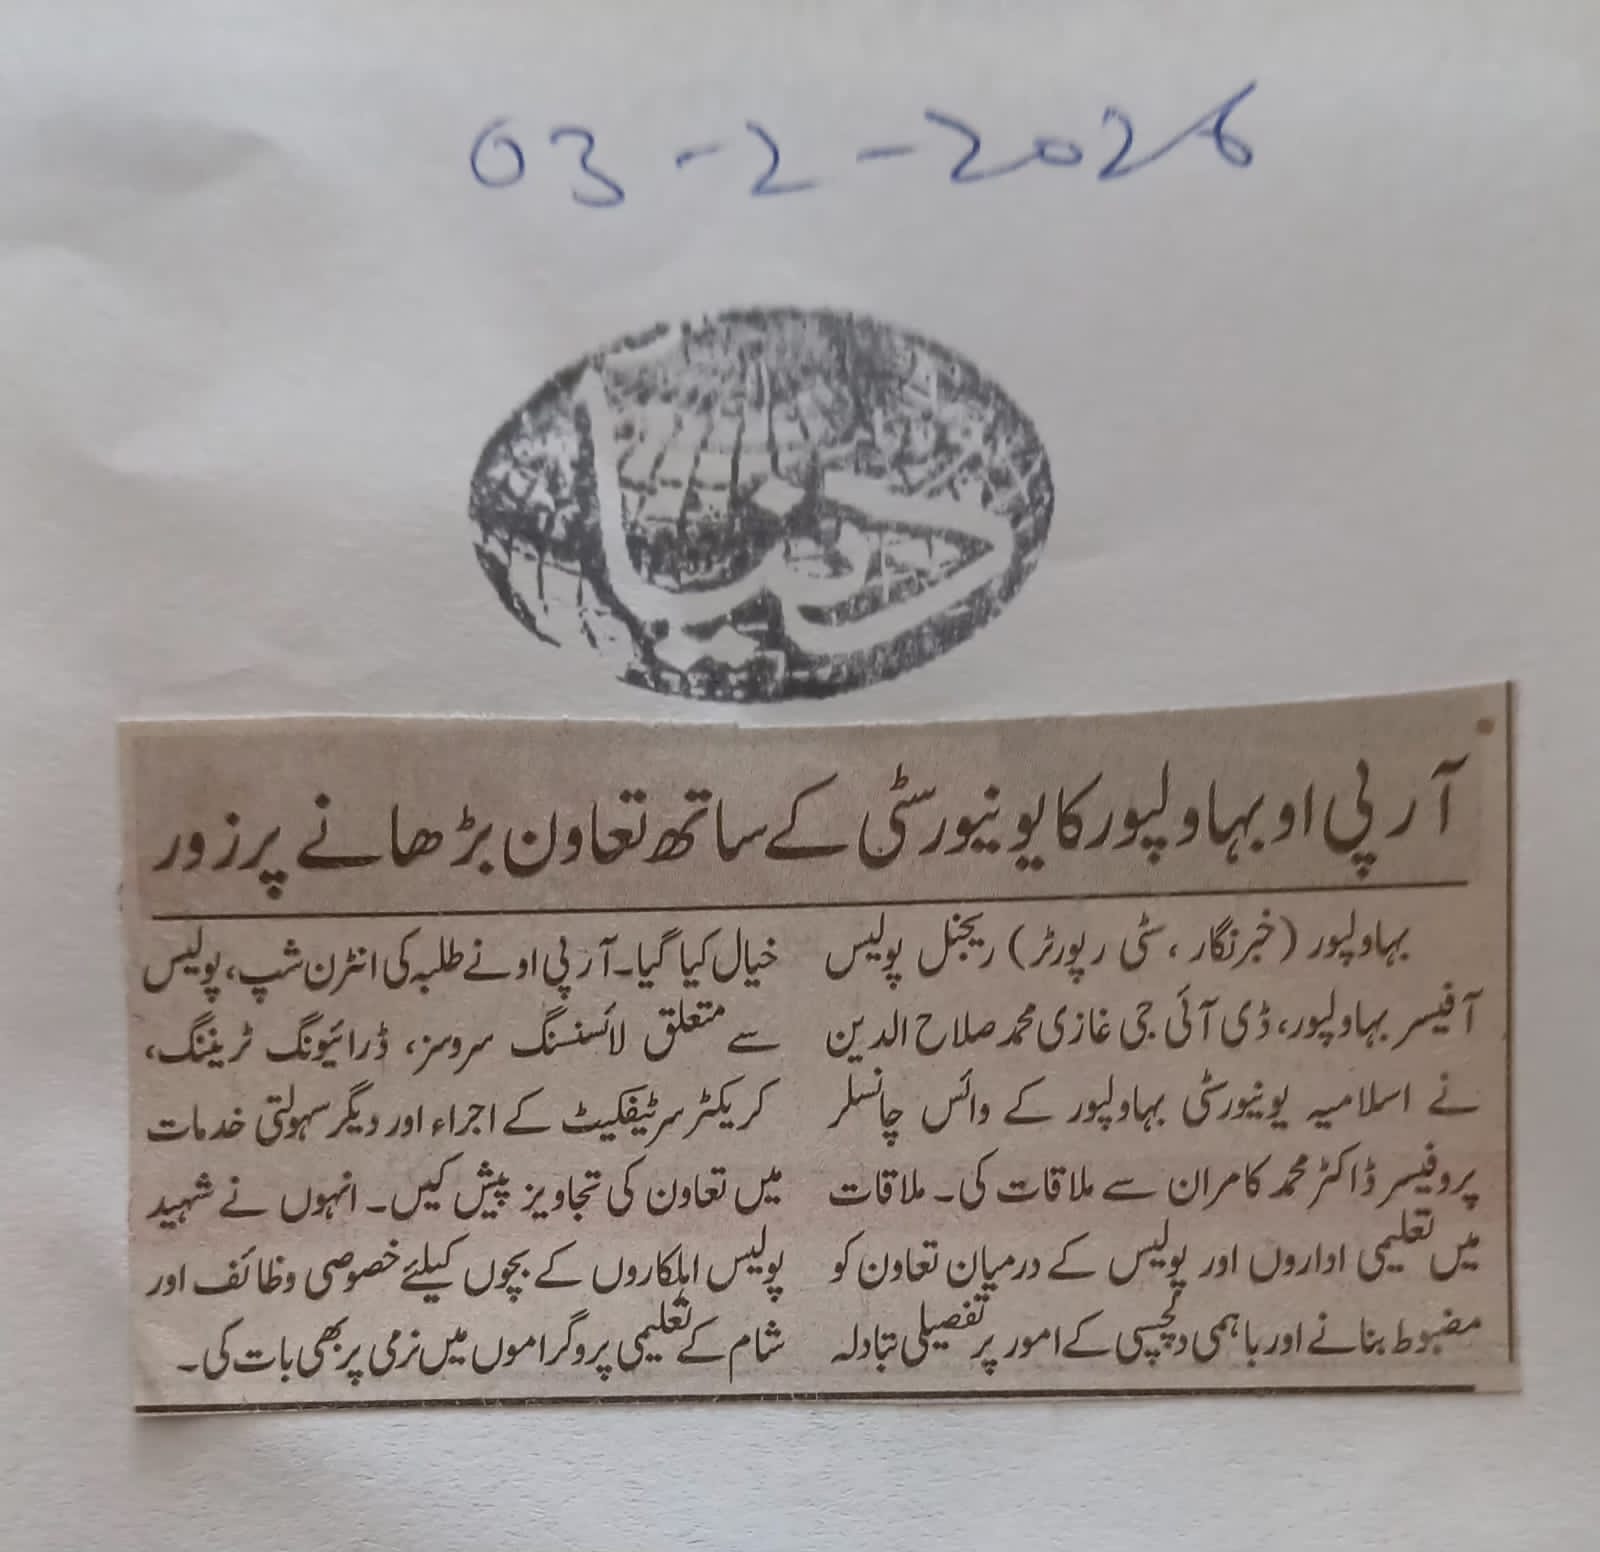 03-2-2026
دنیا
آر پی او بہاولپور کا یونیورسٹی کے ساتھ تعاون بڑھانے پر زور
بہاولپور (خبرنگار، سٹی رپورٹر) ریجنل پولیس
آفیسر بہاولپور، ڈی آئی جی غازی محمد صلاح الدین
نے اسلامیہ یونیورسٹی بہاولپور کے وائس چانسلر
پروفیسر ڈاکٹر محمد کامران سے ملاقات کی۔ ملاقات
میں تعلیمی اداروں اور پولیس کے درمیان تعاون کو
مضبوط بنانے اور باہمی دلچسپی کے امور پر تفصیلی تبادلہ
خیال کیا گیا۔ آر پی او نے طلبہ کی انٹرن شپ، پولیس
سے متعلق لائسنسنگ سروسز، ڈرائیونگ ٹریننگ،
کریکٹر سرٹیفکیٹ کے اجراء اور دیگر سہولتی خدمات
میں تعاون کی تجاویز پیش کیں۔ انہوں نے شہید
پولیس اہلکاروں کے بچوں کیلئے خصوصی وظائف اور
شام کے تعلیمی پروگراموں میں نرمی پر بھی بات کی۔